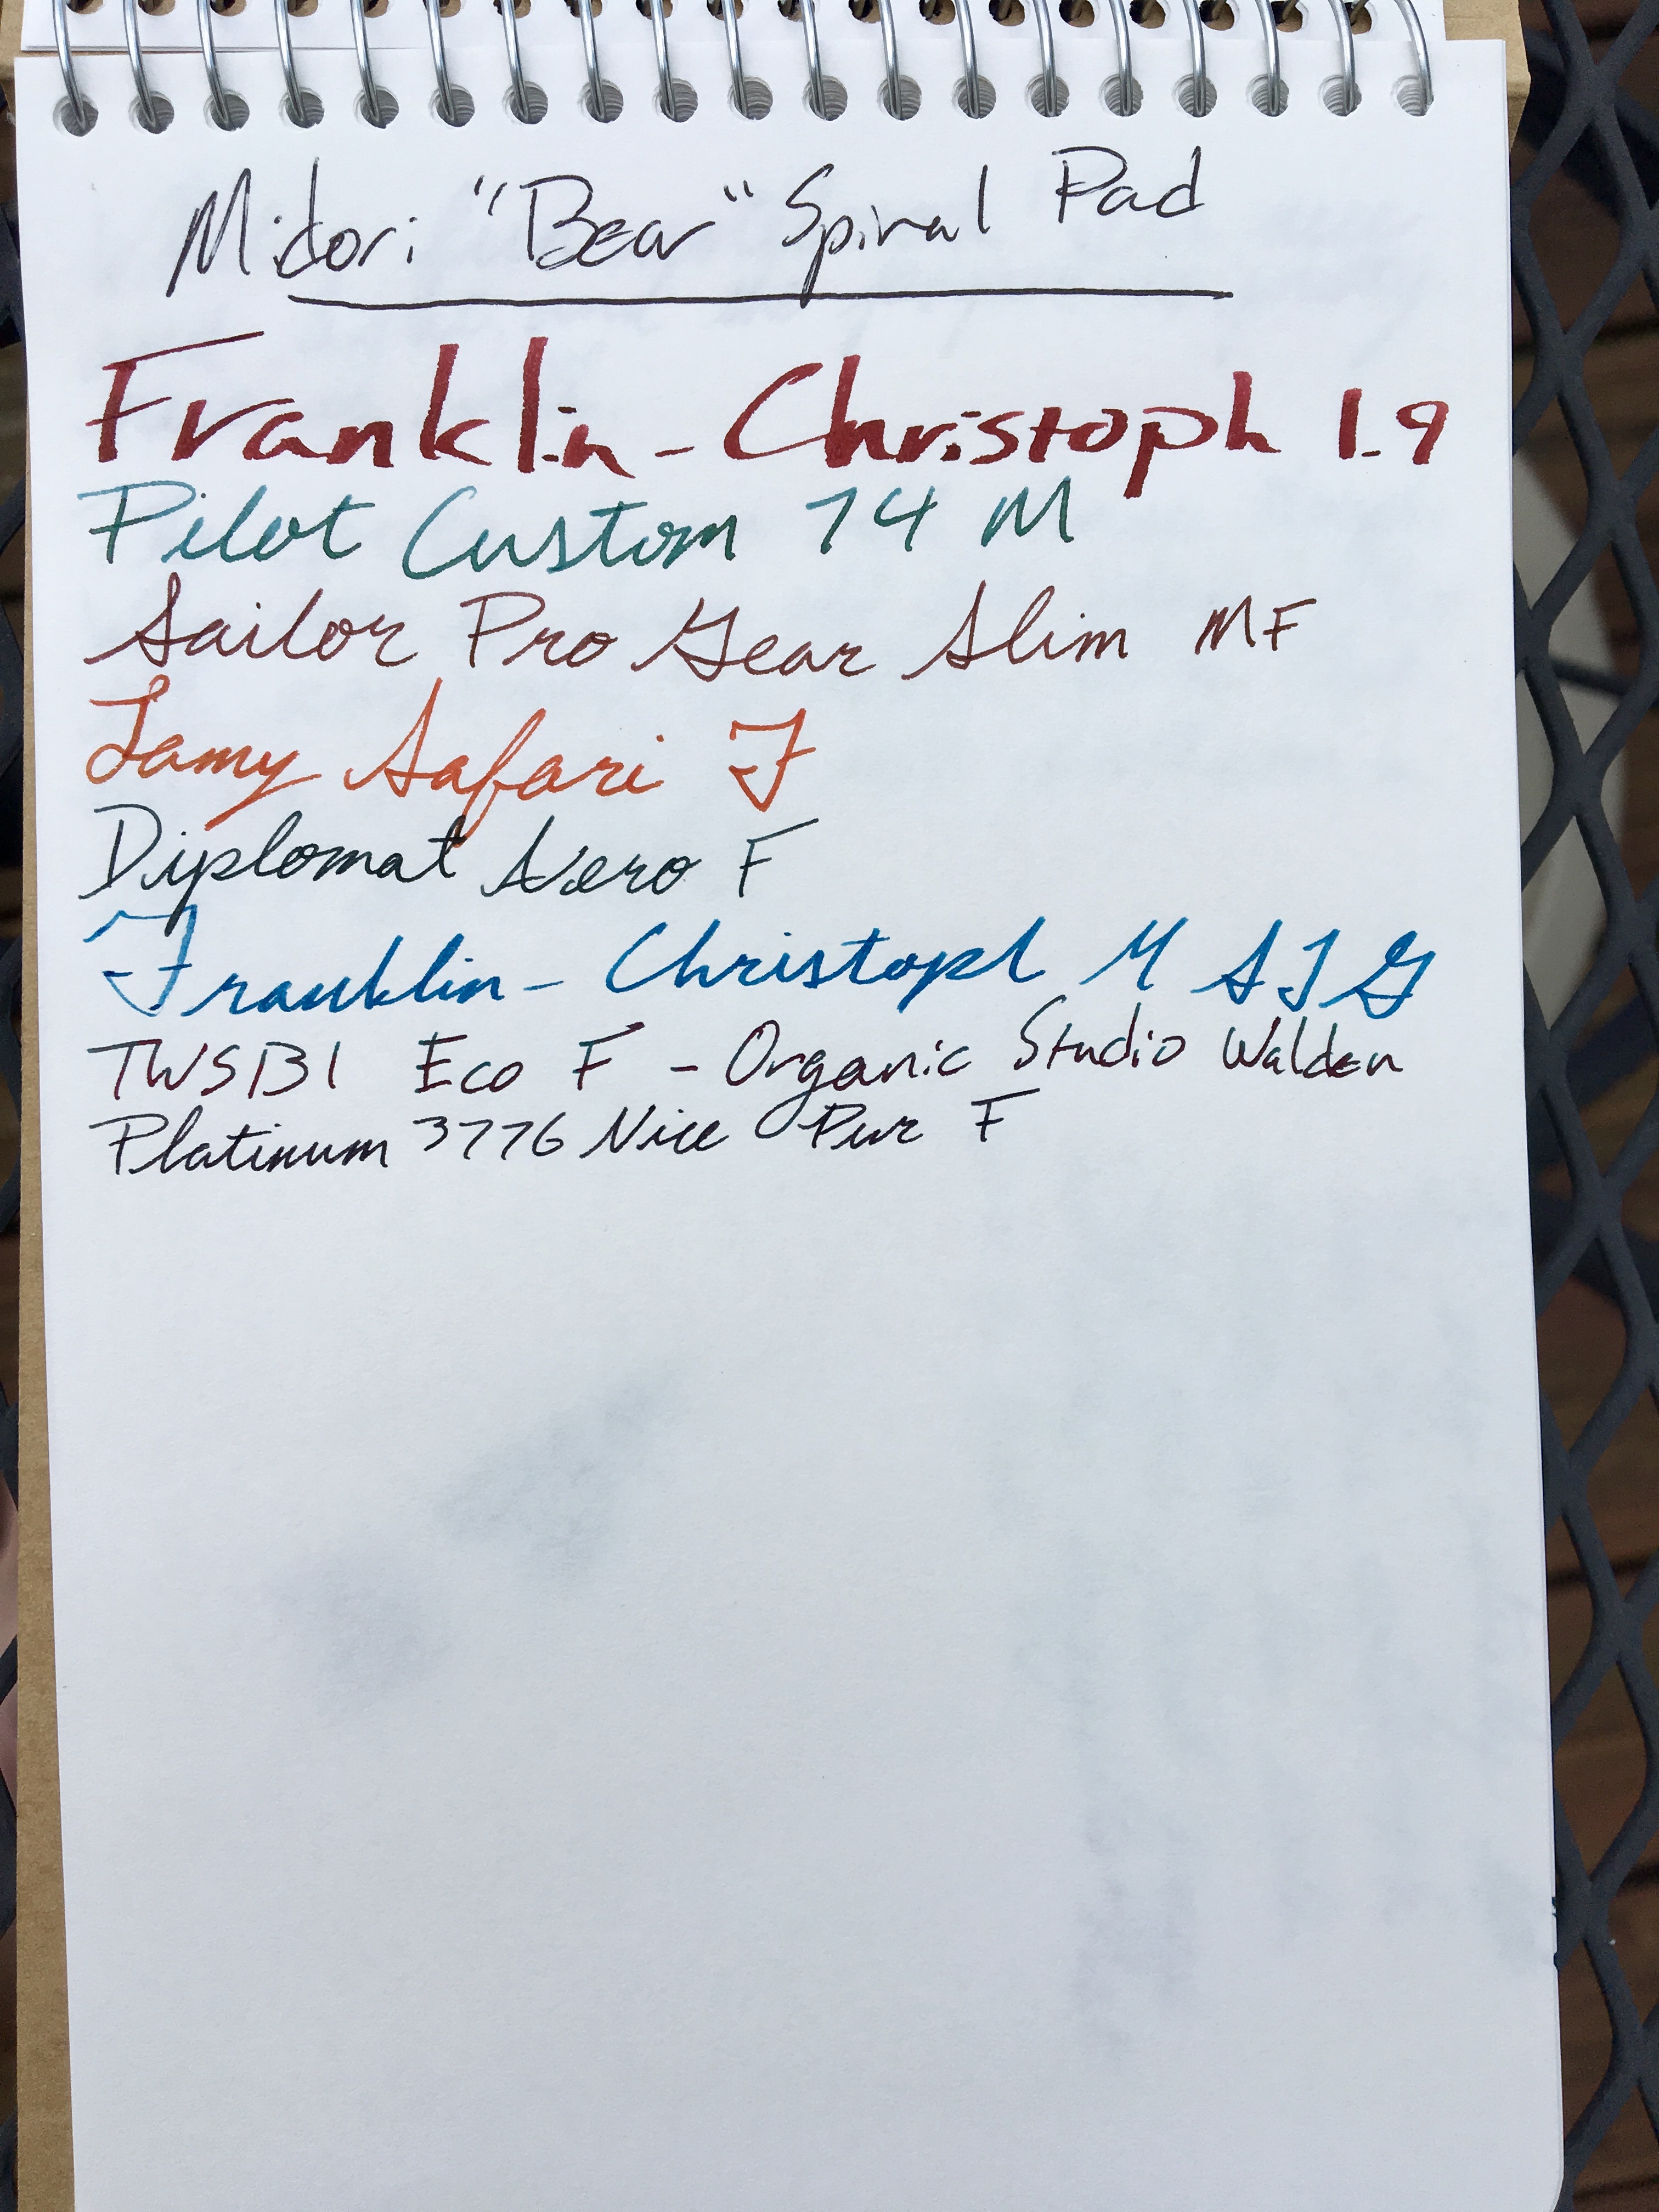 Midori "Bear" Spiral Pad
Franklin-Christoph 1.9
Pilot Custom 74 M
Sailor Pro Gear Slim MF
Lamy Safari F
Diplomat Aero F
Franklin-Christoph M SIG
TWSBI Eco F - Organic Studio Walden
Platinum 3776 Nice Pur F